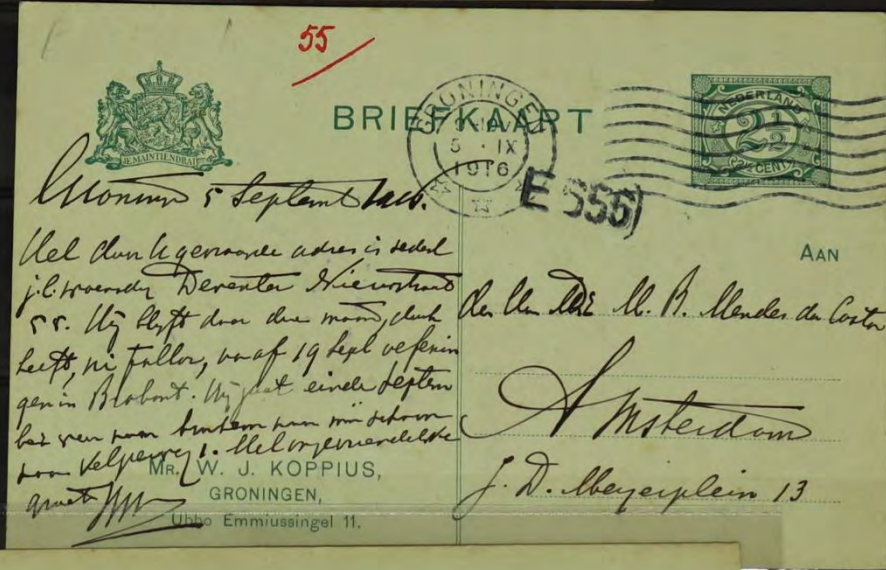 55
BRIEFKAART
JE MAINTIENDRAI
GRONINGEN
5 · IX
1916
NEDERLAND
2 1/2
2½ CENT
E 556
5 Septemb 1916.
Het door U gevraagde adres is sedert
j.l. woensdag Deventer Nieuwstraat
55. Hij blijft daar drie maand, doch
heeft, ni fallor, vanaf 19 Sept oefenin
gen in Brabant. Hij gaat einde Septem
ber naar Arnhem naar mijn schoon
Velperweg 1. Met
groet
MR. W. J. KOPPIUS,
GRONINGEN,
Ubbo Emmiussingel 11.
AAN
M. B. Mendes da Costa
Amsterdam
J. D. Meyerplein 13